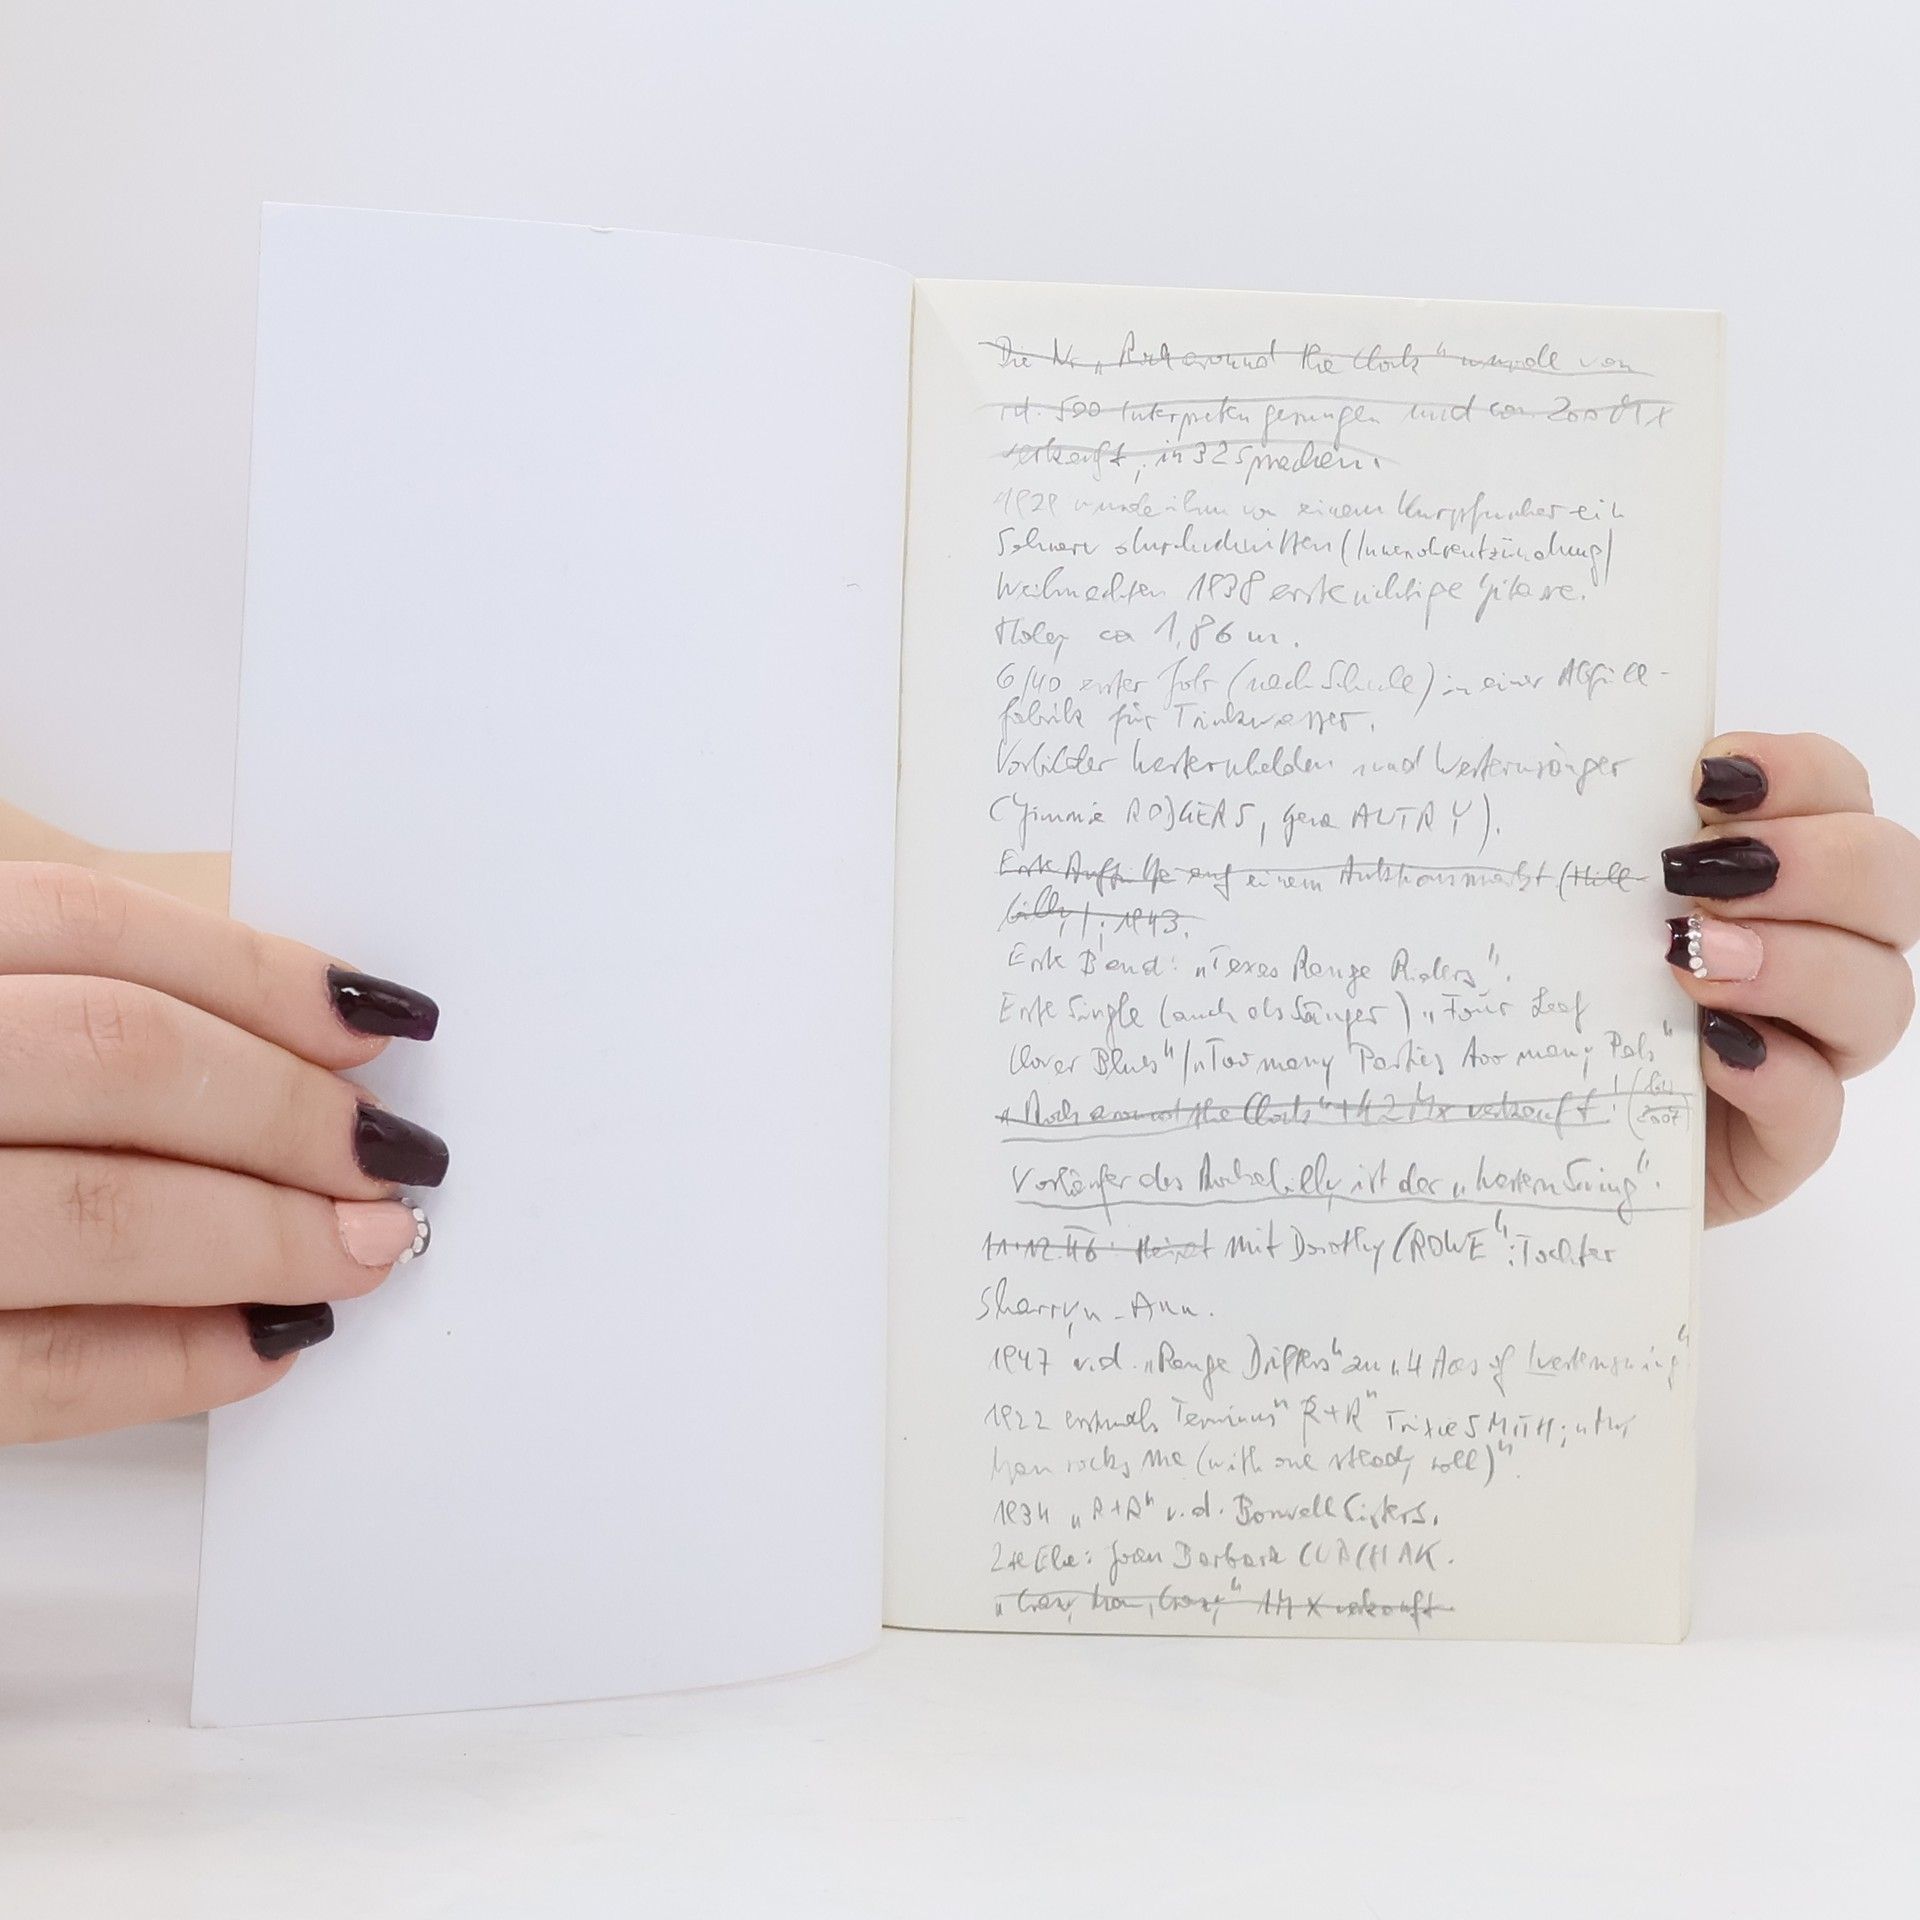 Die Nr „Rock around the Clock" wurde von
rd. 500 Interpreten gesungen und ca. 200 Mx
verkauft, in 32 Sprachen.
1929 wurde ihm von einem Kurpfuscher ein
Sehnerv durchschnitten (Innenohrentzündung)
Weihnachten 1938 erste richtige Gitarre.
Haley ca 1,86 m.
6/40 erster Job (nach Schule) in einer Abfüll-
fabrik für Trinkwasser.
Vorbilder Westernhelden und Westernsänger
(Jimmie RODGERS, Gene AUTRY).
Erste Auftritte auf einem Auktionsmarkt (Hill-
billy), 1943.
Erste Band: „Texas Range Riders".
Erste Single (auch als Sänger) „Four Leaf
Clover Blues"/„Too many Parties too many Pals"
„Rock around the Clock" 42 Mx verkauft! (bis 2007)
Vorläufer des Rockabilly ist der „Western Swing".
11.12.46 Heirat mit Dorothy (ROWE": Tochter
Sharryn-Ann.
1947 v.d. „Range Drifters" zu „4 Aces of Westernswing"
1922 erstmals Terminus" R+R" Trixie SMITH; „My
Man rocks me (with one steady roll)".
1934 „R+R" v.d. Boswell Sisters.
2te Ehe: Joan Barbara CUPCHAK.
„Crazy Man, Crazy" 1M x verkauft.